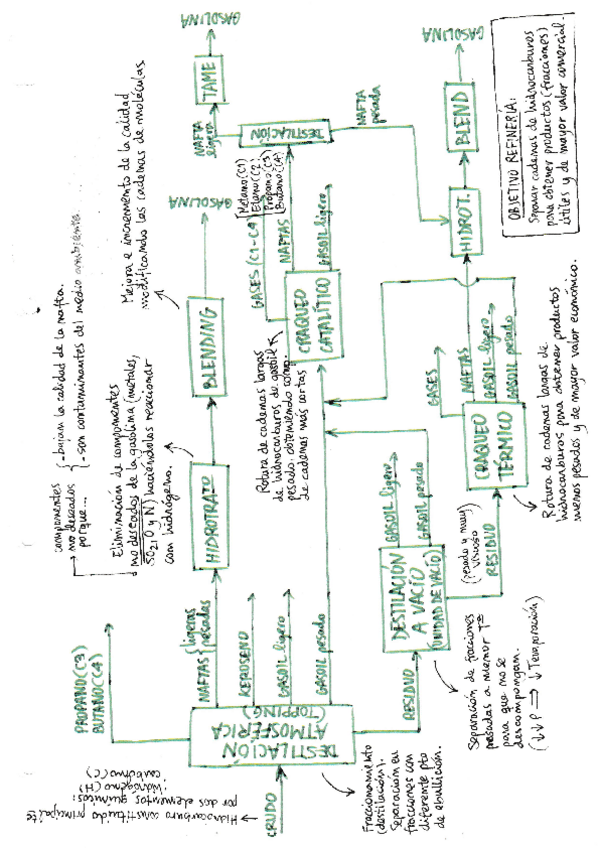 Hidrocarburo constituido principalmte
por dos elementos químicos:
hidrógeno (H)
carbono (C)
CRUDO
DESTILACIÓN
ATMOSFÉRICA
(TOPPING)
Fraccionamiento
(destilación).
Separación en
fracciones con
diferente pto
de ebullición.
PROPANO (C3)
BUTANO (C4)
NAFTAS
ligeras
pesadas
KEROSENO
GASOIL ligero
GASOIL pesado
RESIDUO
componentes
no deseados
porque...
- bajan la calidad de la nafta.
- son contaminantes del medio ambiente.
Eliminación de componentes
no deseados de la gasolina (metales,
SO2, O y N) haciéndolas reaccionar
con hidrógeno.
HIDROTRATO
BLENDING
GASOLINA
Mejora e incremento de la calidad
modificando las cadenas de moléculas
DESTILACIÓN
A VACÍO
(UNIDAD DE VACÍO)
Separación de fracciones
pesadas a menor Tª
para que no se
descompongan.
(↓↓P ⇒ ↓Tevaporación)
GASOIL ligero
GASOIL pesado
(pesado y muy
viscoso)
RESIDUO
Rotura de cadenas largas
de hidrocarburos de gasoil
pesado, obteniendo comp.
de cadenas más cortas
CRAQUEO
CATALÍTICO
GASES (C1-C4)
Metano (C1)
Etano (C2)
Propano (C3)
Butano (C4)
NAFTAS
GASOIL ligero
DESTILACIÓN
NAFTA
ligera
TAME
GASOLINA
NAFTA
pesada
CRAQUEO
TÉRMICO
GASES
NAFTAS
GASOIL ligero
GASOIL pesado
Rotura de cadenas largas de
hidrocarburos para obtener productos
menos pesados y de mayor valor económico.
HIDROT.
BLEND
GASOLINA
OBJETIVO REFINERÍA:
Separar cadenas de hidrocarburos
para obtener productos (fracciones)
útiles y de mayor valor comercial.